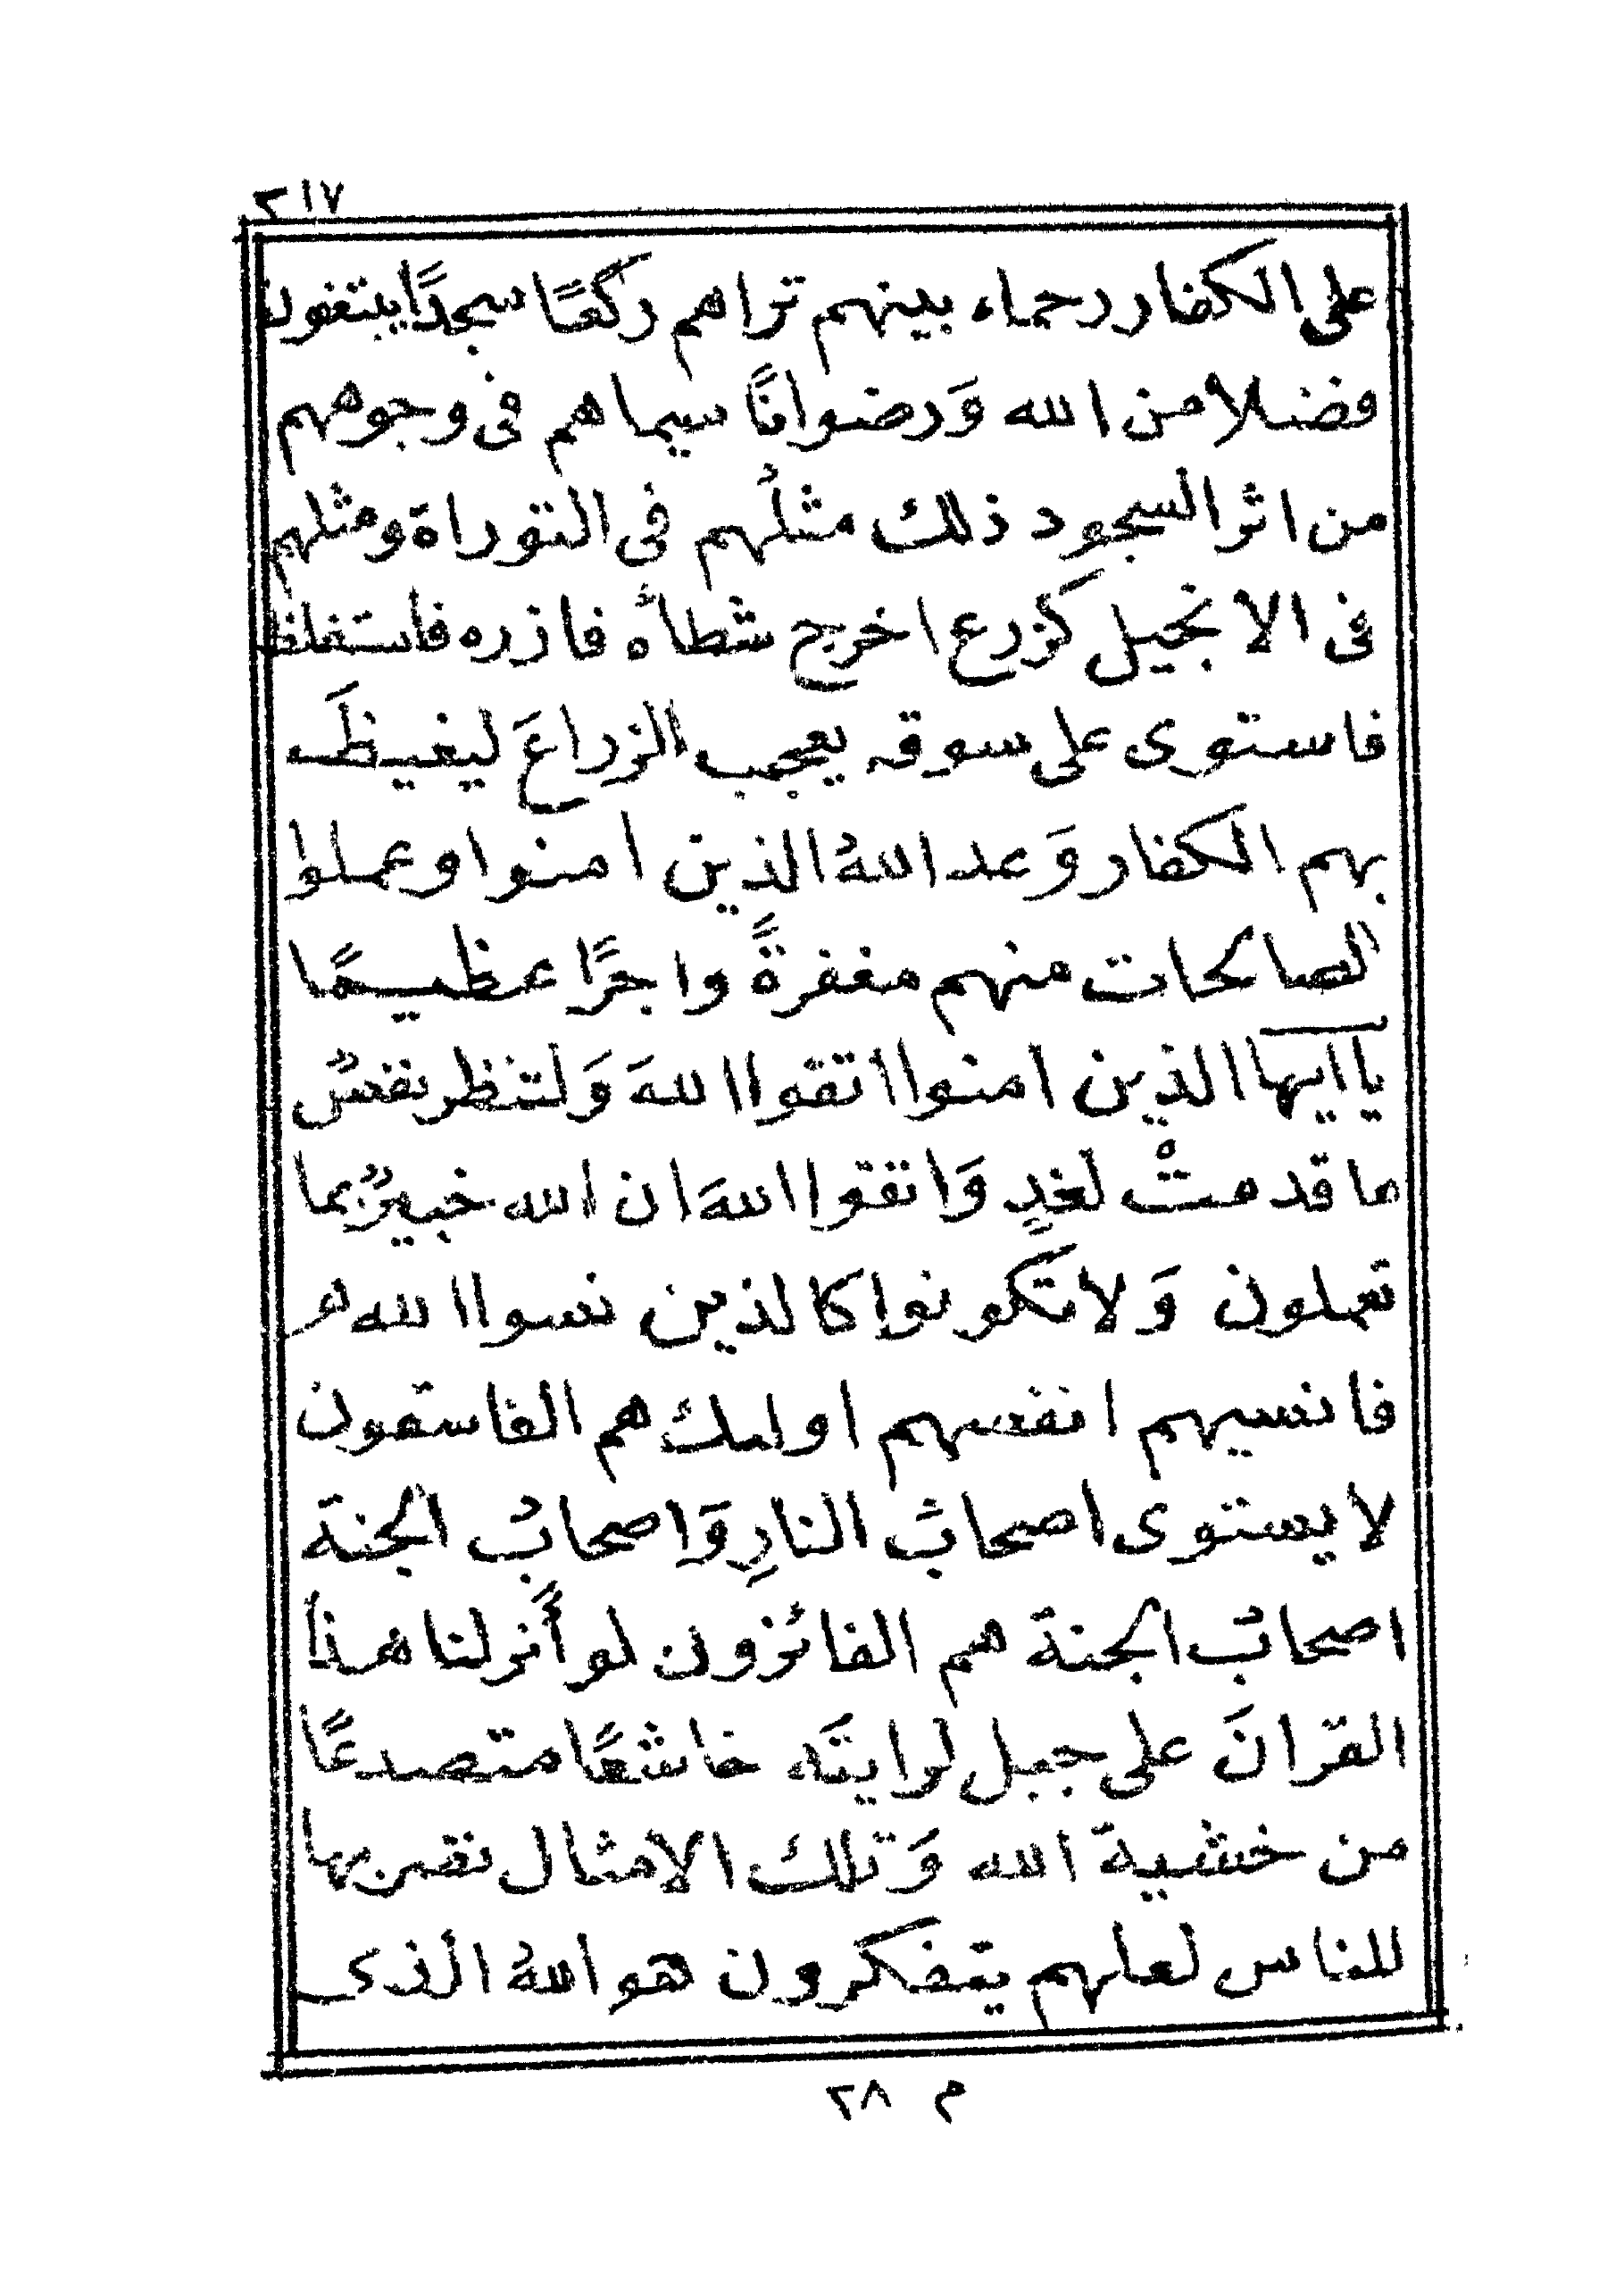 ٢١٧
على الكفار رحماء بينهم تراهم ركعًا سجدًا يبتغون
فضلا من الله وَرضوانًا سيماهم فى وجوههم
من اثر السجود ذلك مثلُهم فى التوراة ومثلهم
فى الانجيل كزرع اخرج شطأه فازره فاستغلظ
فاستوى على سوقه يعجب الزراعَ ليغيظَ
بهم الكفار وَعد اللهُ الذين امنوا وعملوا
الصالحات منهم مغفرةً واجرًا عظيمًا
يا ايها الذين امنوا اتقوا اللهَ وَلتنظر نفسٌ
ما قدمتْ لغدٍ وَاتقوا اللهَ ان الله خبيرٌ بما
تعملون وَلا تكونوا كالذين نسوا الله
فانسيهم انفسهم اولىك هم الفاسقون
لا يستوى اصحابُ النارِ وَاصحابُ الجنة
اصحابُ الجنة هم الفائزون لو أَنزلنا هذا
القرانَ على جبل لرايتَه خاشعًا متصدعًا
من خشية الله وَتلك الامثال نضربها
للناس لعلهم يتفكرون هو اللهُ الذى
م ٢٨